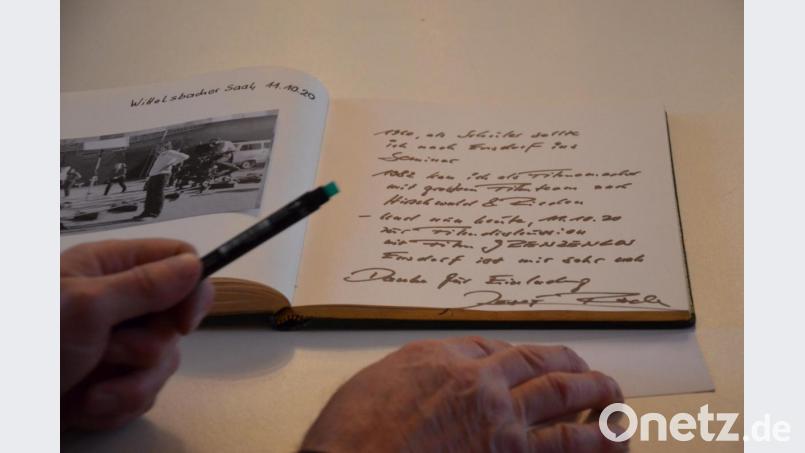 Wittelsbacher Saal, 11.10.20
1960, als Schüler sollte
ich nach Ensdorf ins
Seminar
1982 kam ich als Filmemacher
mit großem Filmteam nach
Hirschwald & Rieden
– Und nun heute, 11.10.20
zur Filmdiskussion
mit Film GRENZENLOS
Ensdorf ist mir sehr nah
Danke für Einladung
Josef Rödl
Onetz.de